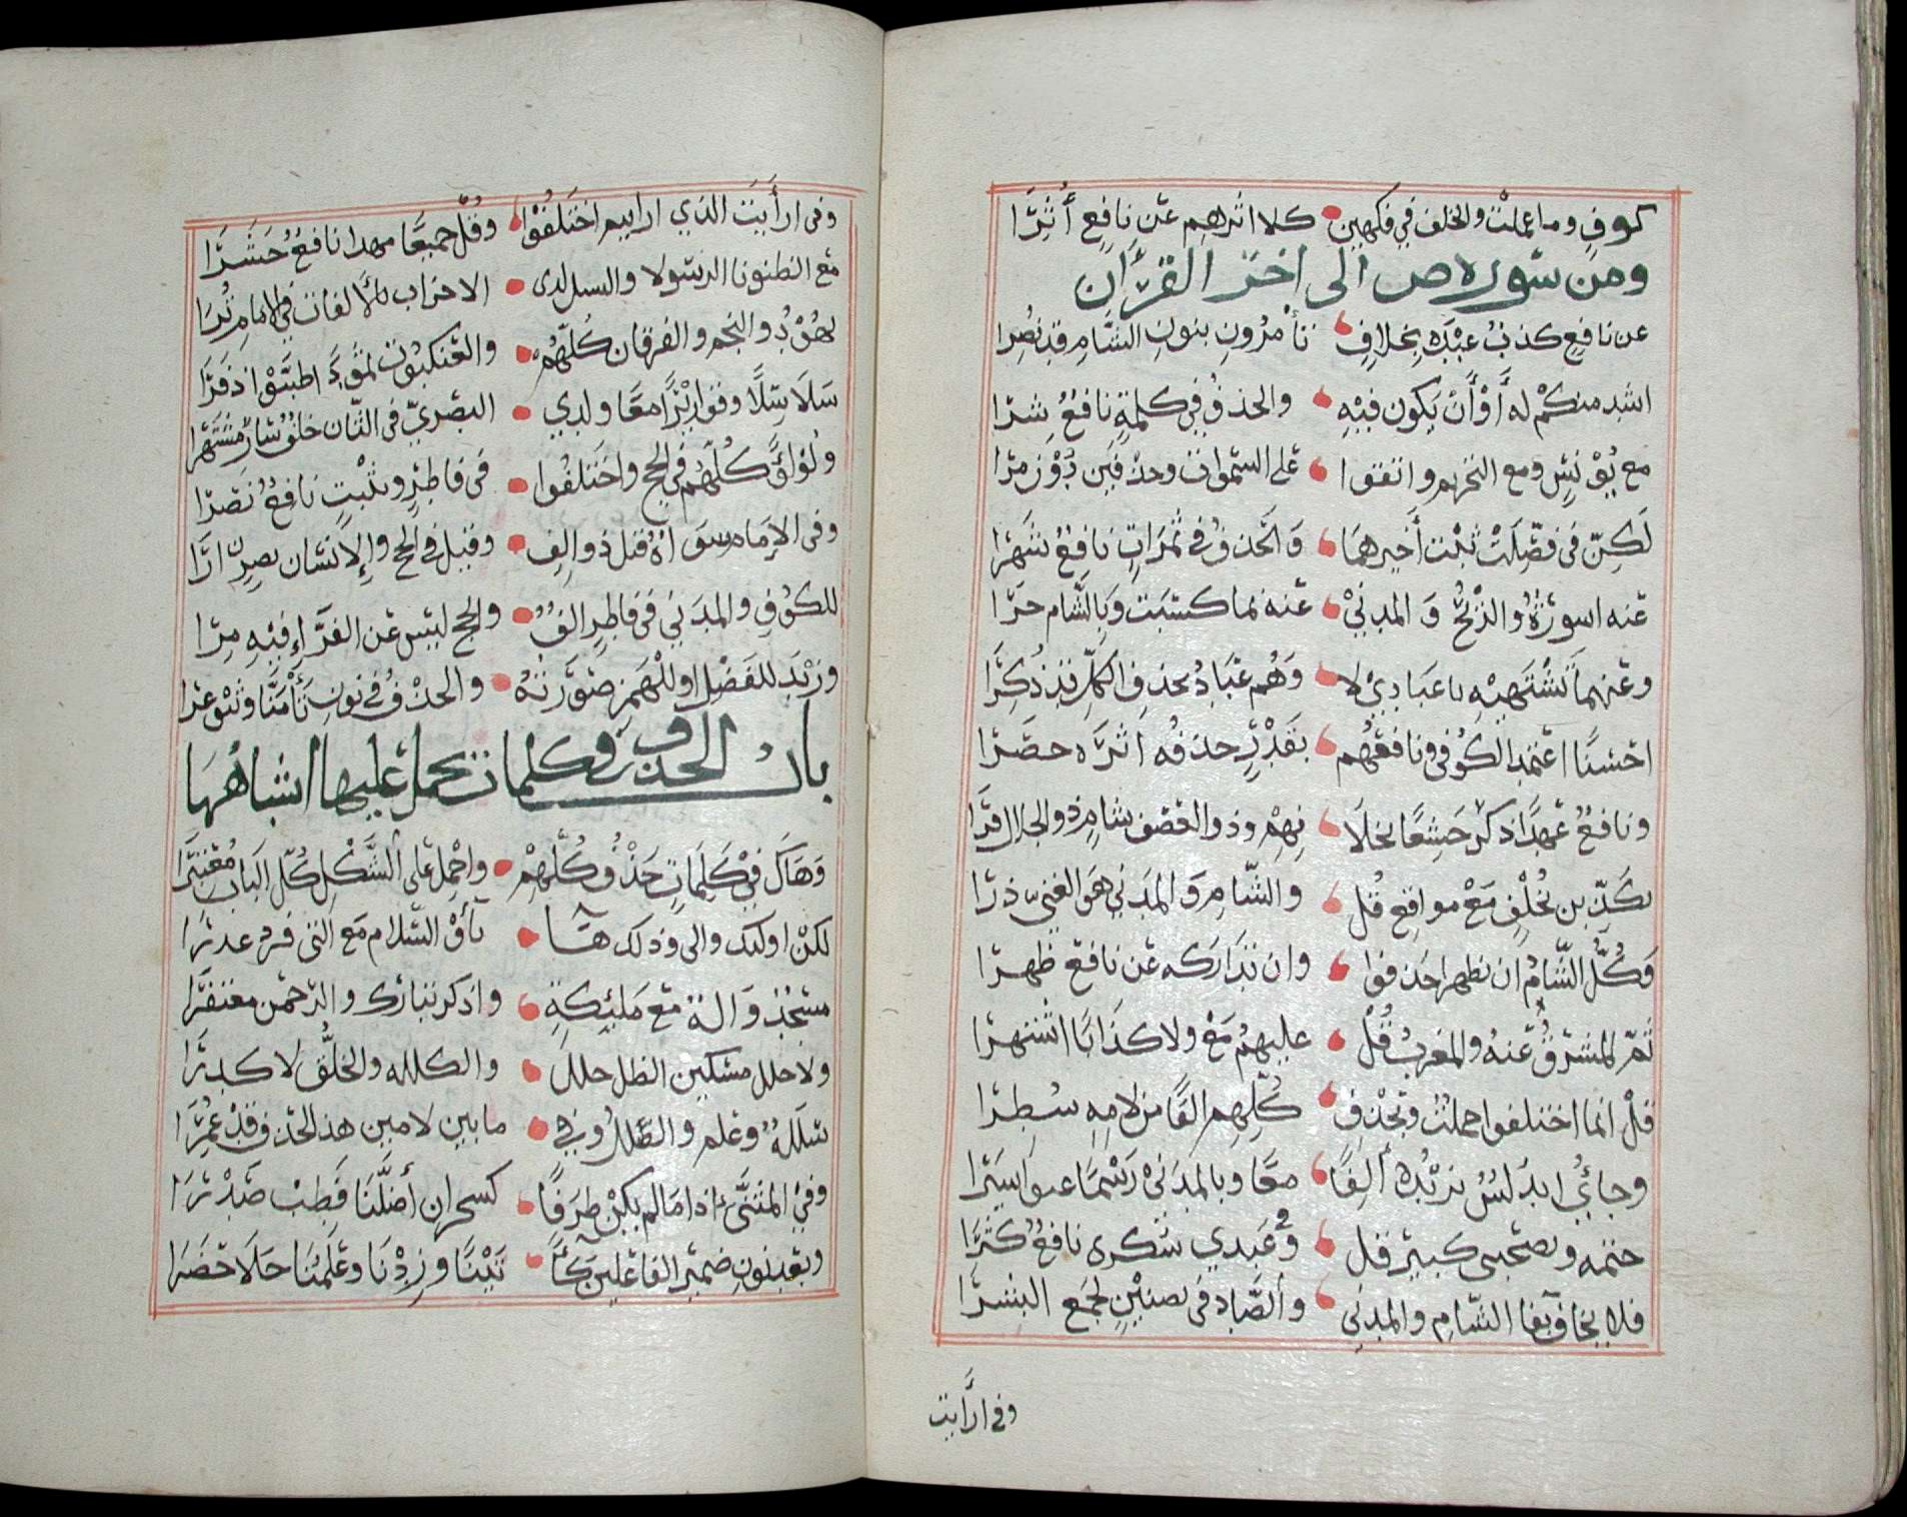 كوفٍ وما عملت والخلف في فكهين كلا اثرهم عن نافع أُثِرَا
ومن سورة ص الى اخر القرآن
عن نافع كذب عبده بخلاف تأمرون بنون الشام قد نصرا
اشد منكم له أو أن يكون فيه والحذف في كلمة نافع شرا
مع يونس ومع التحريم واتفقوا على السموات وحذفين دون مرا
لكن في فصلت ثبت أخيرهما والحذف في ثمرات نافع شهرا
عنه اسورة والريح والمدني عنه بما كسبت وبالشام جرا
وعنهما تشتهيه يا عبادي لا وهم عباد بحذف الكل قد ذكرا
احسنا اعتمد الكوفي ونافعهم بقدر حذفه اثره حصرا
ونافع عهد اذكر خشعا بخلا فهم وذو العصف شام ذو الجلال قرا
تكذبن بخلف مع مواقع قل والشام والمدني هو الغني ذرا
وكل الشام ان تظهرا حذفوا وان تداركه عن نافع ظهرا
ثم المشرق عنه والمغرب قل عليهم مع ولا كذابا اشتهرا
قل انما اختلفوا جملت وبحذف كلهم الفا من لامه سطرا
وجايء اندلس تزيده ألفا معا وبالمدني رسما عنوا سيرا
ختمه وتصحبني كبير قل وفي عبدي سكرى نافع كثرا
فلا يخاف بفا الشام والمدني والضاد في بضنين لجمع البشرا
وفي ارأيت
وفي ارأيت الذي ارايتم اختلفوا وقل جميعا مهدا نافع حشرا
مع الظنونا الرسولا والسبيلا لدى الاحزاب بالألفات في الامام ترا
بهود والنجم والفرقان كلهم والعنكبوت ثمودا طيبوا ذفرا
سلاسلا وقواريرا معا ولدي البصري في الثان خلف سار مشتهرا
ولؤلؤا كلهم في الحج واختلفوا في فاطر وبثبت نافع نصرا
وفي الامام سواه قيل ذو الف وقيل في الحج والانسان بصر ارا
للكوف والمدني في فاطر الف والحج ليس عن الفراء فيه مرا
وزيد للفصل او للهمز صورته والحذف في نون تأمنا وثيق عرا
باب الحذف وكلمات يحمل عليها اشباهها
وهاك في كلمات حذف كلهم واحمل على الشكل كل الباب معتبرا
لكن اولئك والٰى وذلك ها يا والسلام مع التى فرد عدرا
مسجد واله مع ملئكة واذكر تبارك والرحمن مغتفرا
ولا خلل مسكين الظلل حلل والكلله والخلق لا كدرا
سللة وغلم والظلل وفي ما بين لامين هذا لحذف قد عمرا
وفي المثنى اذا ما لم يكن طرفا كسحران أضلنا فطب صدرا
وبعد نون ضمير الفاعلين كا تينا وزدنا وعلمنا حلا خضرا